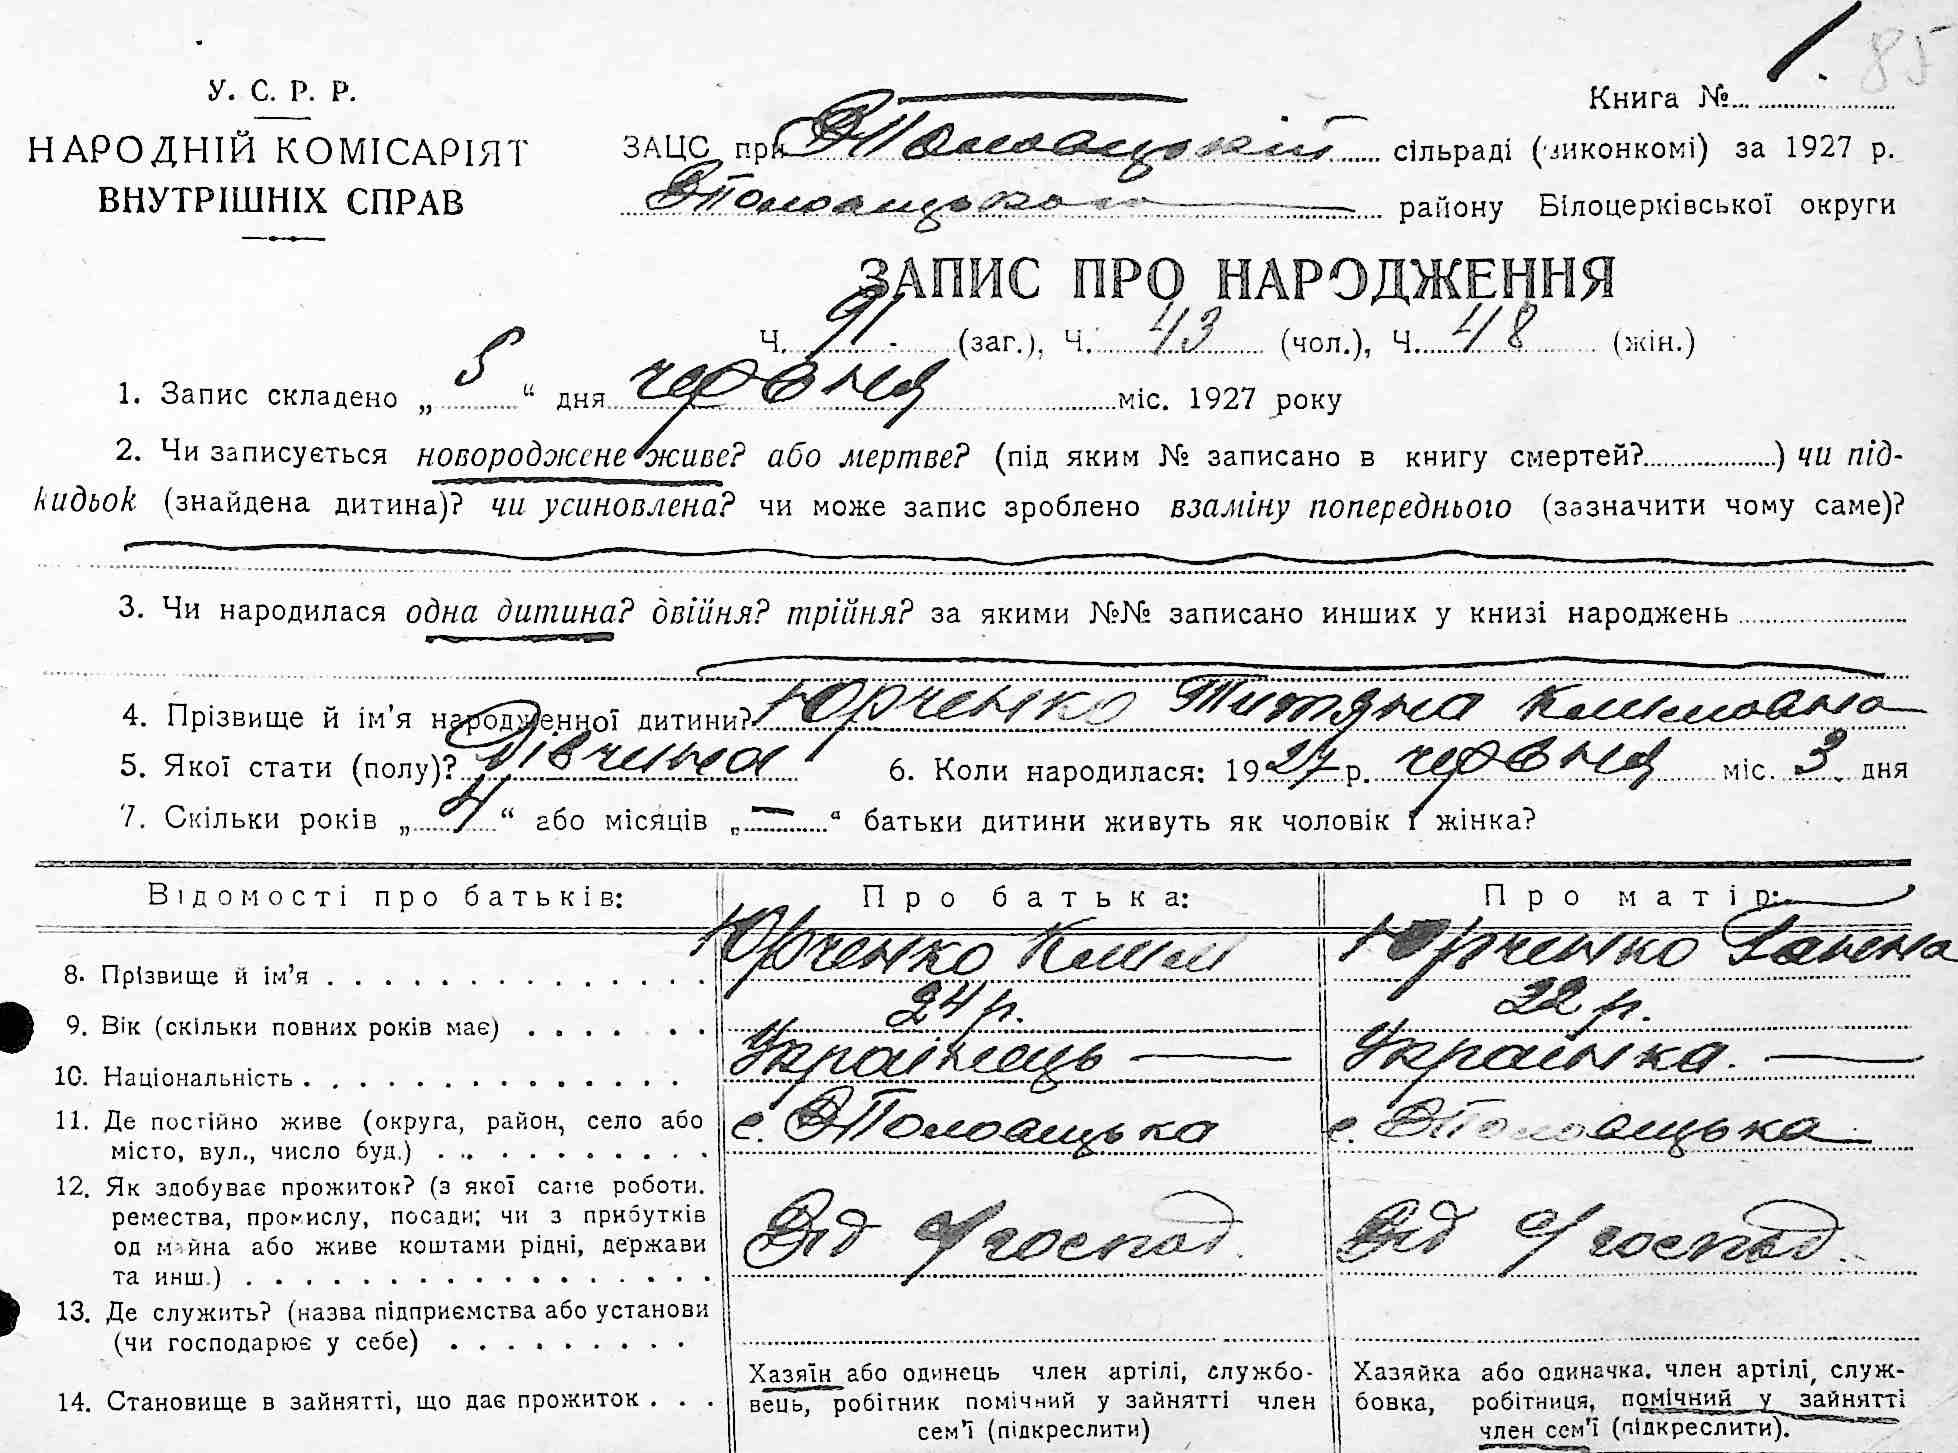 85
1.
У. С. Р. Р.
Книга №
НАРОДНІЙ КОМІСАРІЯТ
ВНУТРІШНІХ СПРАВ
ЗАЦС при сільраді (виконкомі) за 1927 р.
району Білоцерківської округи
ЗАПИС ПРО НАРОДЖЕННЯ
Ч. 91 (заг.), Ч. 43 (чол.), Ч. 48 (жін.)
1. Запис складено „ 5 “ дня червня міс. 1927 року
2. Чи записується новороджене живе? або мертве? (під яким № записано в книгу смертей? ) чи під-
кидьок (знайдена дитина)? чи усиновлена? чи може запис зроблено взаміну попереднього (зазначити чому саме)?
3. Чи народилася одна дитина? двійня? трійня? за якими №№ записано инших у книзі народжень
4. Прізвище й ім’я народженної дитини? Юрченко Титяна Климовна
5. Якої стати (полу)? Дівчина 6. Коли народилася: 1927 р. червня міс. 3 дня
7. Скільки років „ 4 “ або місяців „ — “ батьки дитини живуть як чоловік і жінка?
Відомості про батьків: Про батька: Про матір:
8. Прізвище й ім’я Юрченко Клим Юрченко Ганна
9. Вік (скільки повних років має) 24 р. 22 р.
10. Національність Українець — Українка. —
11. Де постійно живе (округа, район, село або
місто, вул., число буд.) с. с.
12. Як здобуває прожиток? (з якої саме роботи.
ремества, промислу, посади; чи з прибутків
од майна або живе коштами рідні, держави
та инш.) Від с/господ. Від с/господ.
13. Де служить? (назва підприємства або установи
(чи господарює у себе)
14. Становище в зайнятті, що дає прожиток
Хазяїн або одинець член артілі, службо-
вець, робітник помічний у зайнятті член
сем’ї (підкреслити)
Хазяйка або одиначка. член артілі, служ-
бовка, робітниця, помічний у зайнятті
член сем’ї (підкреслити).